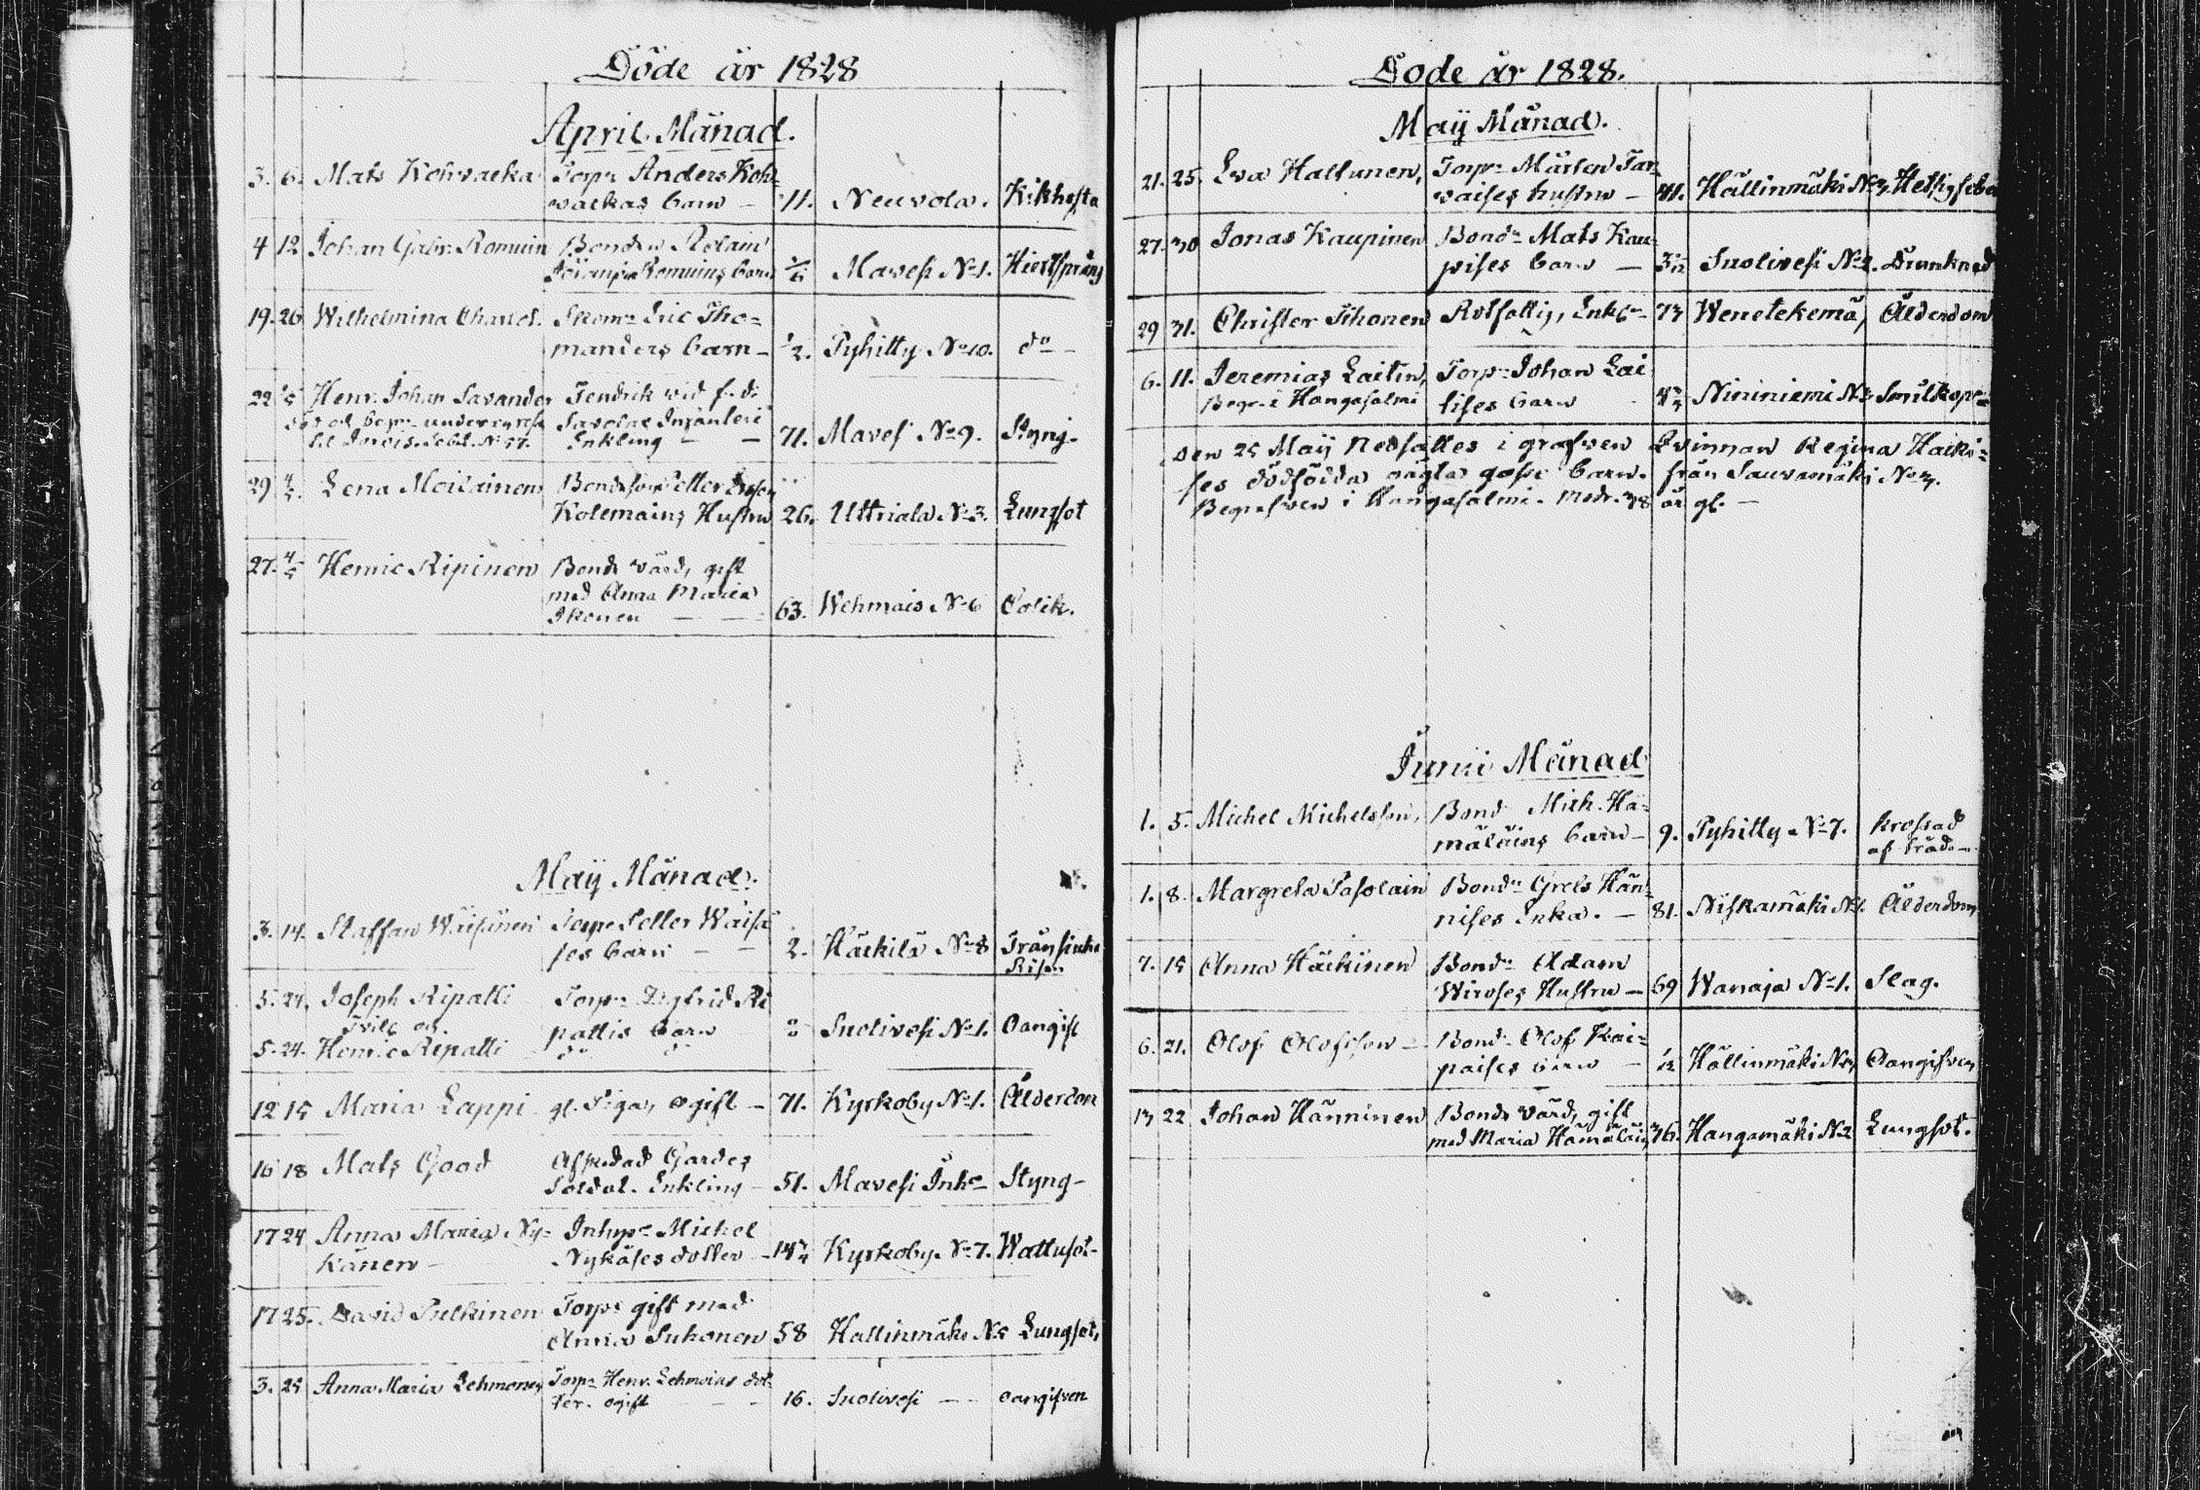 Döde år 1828
April Månad.
3. 6. Mats Kohvacka Torpr Anders Koh=
vackas barn - 11. Neuvola. Kikhosta
4 12 Johan Gabr. Romuin Bonden
Romuins barn Mavesi No 1. Hiertsprång
19. 26 Wilhelmina Charlot. Skomr Eric Tho=
manders barn - 1/2. Pyhitty No 10. do -
22 Henr. Johan Savander Fendrik vid f.d.
Savolax Infanteri
Enkling - - 71. Mavesi No 9. Styng-
29 4/5. Lena Moilainen Bondeson Petter
Kolemains Hustru 26. Uttriala No 3. Lungsot
27. 4/5 Henric Ripinen Bonde värd, gift
med Anna Maria
Ikonen - - 63. Wehmais No 6 Colik.
Maÿ Månad.
3. 14. Staffan Wäisänen Torpr Petter Wäisä
ses barn - 2. Häckilä No 8 Trånsiuka
Risen
5. 24. Joseph Ripatti Torpr Sigfrid Ri
Tvill. och pattis barn Suolivesi No 1. Oangift
5. 24. Henric Ripatti do do
12 15 Maria Lappi gl. Piga, ogift - 71. Kyrkoby No 1. Ålderdom
16 18 Mats Good Afskedad Gardes
Soldat. Enkling - 51. Mavesi Inhs Styng-
17 24 Anna Maria Ny= Inhyss Michel
känen - Nykäses dotter - 14 3/4 Kyrkoby No 7. Wattusot-
17 25. David Pulkinen Torpr gift med
Anna Suhonen 58 Hällinmäki No 5 Lungsot,
3. 25 Anna Maria Lehmonen Torpr Henr. Lehmoins dot
ter. ogift - - - 16. Suolivesi - - oangifven
Döde år 1828.
Maÿ Månad.
21. 25. Eva Hallunen, Torpr Mårten Tar
vaises hustru - 41. Hällinmäki No 3, Hetsigfeber
27. 30 Jonas Kaupinen Bondn Mats Kau
pises barn - Suolivesi No 2. Drunknad
29 31. Christer Tihonen Rotfattig, Enkl. 73 Wenetekemä, Ålderdom
6. 11. Jeremias Laitin, Torpr Johan Lai
Begr. i Hangasalmi tises barn Nininiemi No 3 Smålkopr
den 25 Maÿ Nedsattes i grafven Qvinnan Regina Hacki=
ses dödfödda oägta gosse barn. från Sauvamäki No 3.
Begrafven i Hangasalmi. Modr. 38 år gl. -
Junii Månad
1. 5. Michel Michelsson, Bond Mich. Hä=
mäläins barn - 9. Pyhitty No 7. Krossad
af träd. -
1. 8. Margreta Pasolain Bondn Grels Hän
nises Enka. - 81. Niskamäki No 1. Ålderdom
7. 15 Anna Häckinen Bondn Adam
Wiroses Hustru - 69 Wanaja No 1. Slag.
6. 21. Olof Olofsson - Bondn Olof Kai=
paises barn - 1/2 Hällinmäki No 3, Oangifven
13 22 Johan Hänninen Bonde värd, gift
med Maria Hämäläin, 36. Hangamäki No 2 Lungsot.